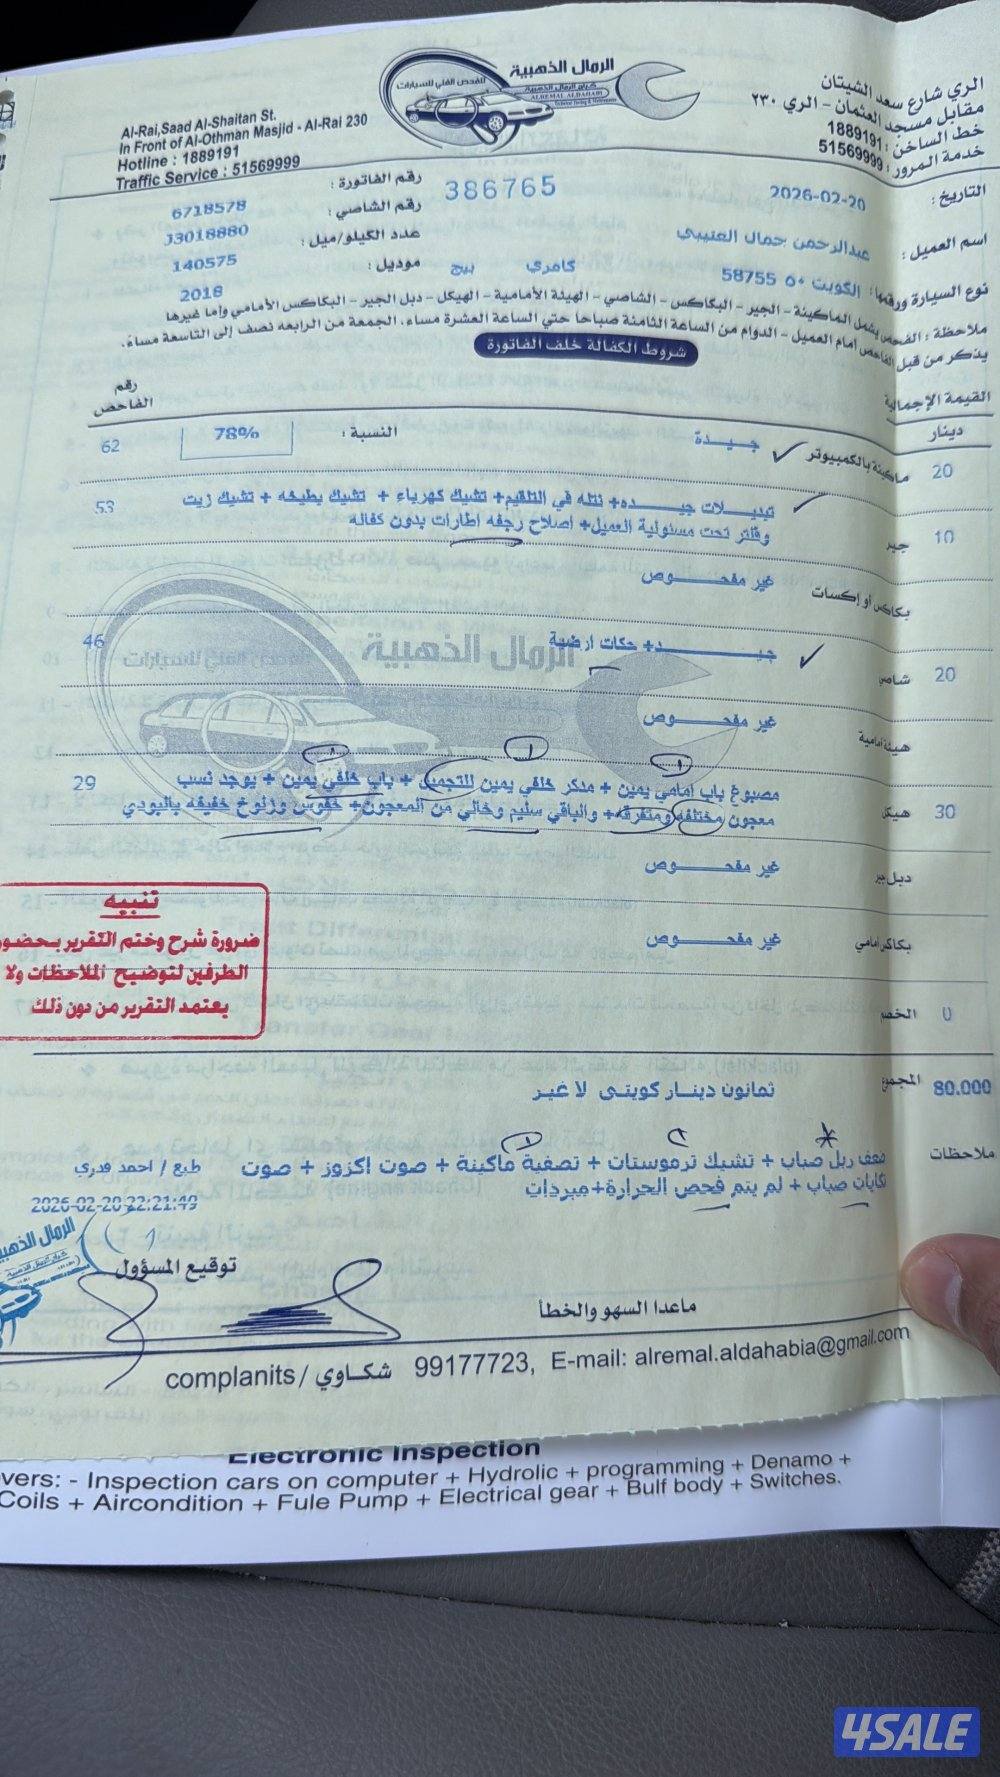 الرمال الذهبية
كراج الرمال الذهبية
ALREMAL ALDAHABI
للفحص الفني للسيارات
الري شارع سعد الشيتان
مقابل مسجد العثمان - الري ٢٣٠
خط الساخن : 1889191
خدمة المرور : 51569999
Al-Rai,Saad Al-Shaitan St.
In Front of Al-Othman Masjid - Al-Rai 230
Hotline : 1889191
Traffic Service : 51569999
التاريخ : 2026-02-20
386765
رقم الفاتورة :
رقم الشاصي : 6718578
اسم العميل : عبدالرحمن جمال العتيبي
عدد الكيلو/ميل : J3018880
نوع السيارة ورقمها : الكويت ٥٠ 58755 كامري بيج
موديل : 140575
2018
ملاحظة : الفحص يشمل الماكينة - الجير - البكاكس - الشاصي - الهيئة الأمامية - الهيكل - دبل الجير - البكاكس الأمامي وإما غيرها
يذكر من قبل الفاحص أمام العميل - الدوام من الساعة الثامنة صباحا حتي الساعة العشرة مساء، الجمعة من الرابعه نصف إلى التاسعة مساءً.
شروط الكفالة خلف الفاتورة
القيمة الإجمالية
دينار
رقم الفاحص
20 ماكينة بالكمبيوتر جيدة النسبة : 78% 62
10 جير تبديلات جيده+ نتله في التلقيم+ تشيك كهرباء + تشيك بطيخه + تشيك زيت 53
وفلتر تحت مسئولية العميل+ اصلاح رجفه اطارات بدون كفاله
بكاكس أو إكسات غير مفحوص
20 شاصي جيد+ حكات ارضية 46
هيئة امامية غير مفحوص
30 هيكل مصبوغ باب امامي يمين + مدكر خلفي يمين للتجميل + باب خلفي يمين + يوجد نسب 29
معجون مختلفه ومتفرقه+ والباقي سليم وخالي من المعجون+ خفوس وزلوخ خفيفه بالبودي
دبل جير غير مفحوص
بكاكس امامي غير مفحوص
الخصم 0
تنبيه
ضرورة شرح وختم التقرير بحضور
الطرفين لتوضيح الملاحظات ولا
يعتمد التقرير من دون ذلك
80.000 المجموع ثمانون دينار كويتى لا غير
ملاحظات ضعف ربل صباب + تشيك ترموستات + تصفية ماكينة + صوت اكزوز + صوت
تكايات صباب + لم يتم فحص الحرارة+مبردات
طبع / احمد قدري
2026-02-20 22:21:49
توقيع المسؤول
ماعدا السهو والخطأ
complanits / شكاوي 99177723, E-mail: alremal.aldahabia@gmail.com
Electronic Inspection
vers: - Inspection cars on computer + Hydrolic + programming + Denamo +
Coils + Aircondition + Fule Pump + Electrical gear + Bulf body + Switches.
4SALE